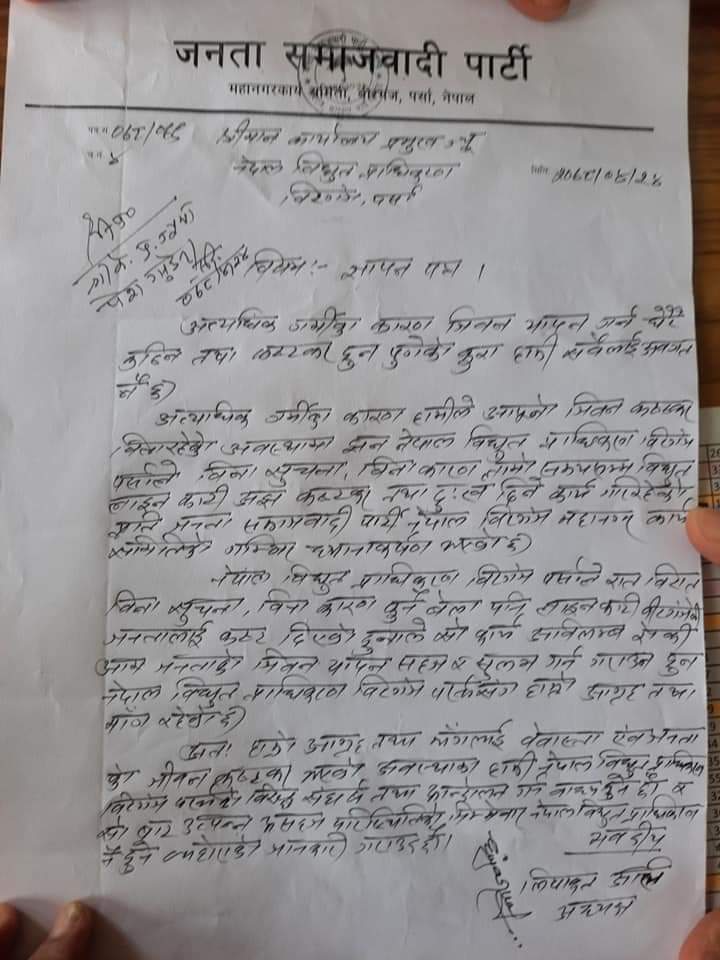 जनता समाजवादी पार्टी
महानगरकार्य समिति, वीरगंज, पर्सा, नेपाल
श्रीमान कार्यालय प्रमुख ज्यू
नेपाल विद्युत प्राधिकरण
विरगंज, पर्सा
विषय:- ज्ञापन पत्र ।
अत्यधिक गर्मीका कारण जिवन यापन गर्न
कठिन तथा कष्टकर हुन पुगेको कुरा हामी सबैलाई अवगत
नै छ।
अत्याधिक गर्मीका कारण हामीले आफ्नो जिवन कष्टकर
अवस्थामा झन नेपाल विद्युत प्राधिकरण विरगंज
पर्साले बिना सुचना, बिना कारण लामो समयसम्म विद्युत
लाइन काटी अझ कष्टकर तथा दुःख दिने कार्य गरिरहेको
प्रति जनता समाजवादी पार्टी नेपाल विरगंज महानगर कार्य
समितिको गम्भिर ध्यानाकर्षण भएको छ।
नेपाल विद्युत प्राधिकरण विरगंज पर्साले रात विरात
बिना सुचना, बिना कारण कुनै बेला पनि लाइन काटी
जनतालाई कष्ट दिएको हुनाले सो कार्य अविलम्ब रोकी
आम जनताको जिवन यापन सहज र सुलभ गर्न गराउन हुन
नेपाल विद्युत प्राधिकरण विरगंज पर्सासंग हाम्रो आग्रह तथा
माँग रहेको छ।
अतः हाम्रो आग्रह तथा माँगलाई वेवास्ता एवं जनता
को जीवन कष्टकर भएको अवस्थामा हामी नेपाल विद्युत प्राधिकरण
विरगंज पर्साको विरुद्ध संघर्ष तथा आन्दोलन गर्न बाध्य हुने छौ र
सो बाट उत्पन्न असहज परिस्थितिको जिम्मेवार नेपाल विद्युत प्राधिकरण
नै हुने व्यहोराको जानकारी गराउदछौ।
भवदीय
अध्यक्ष